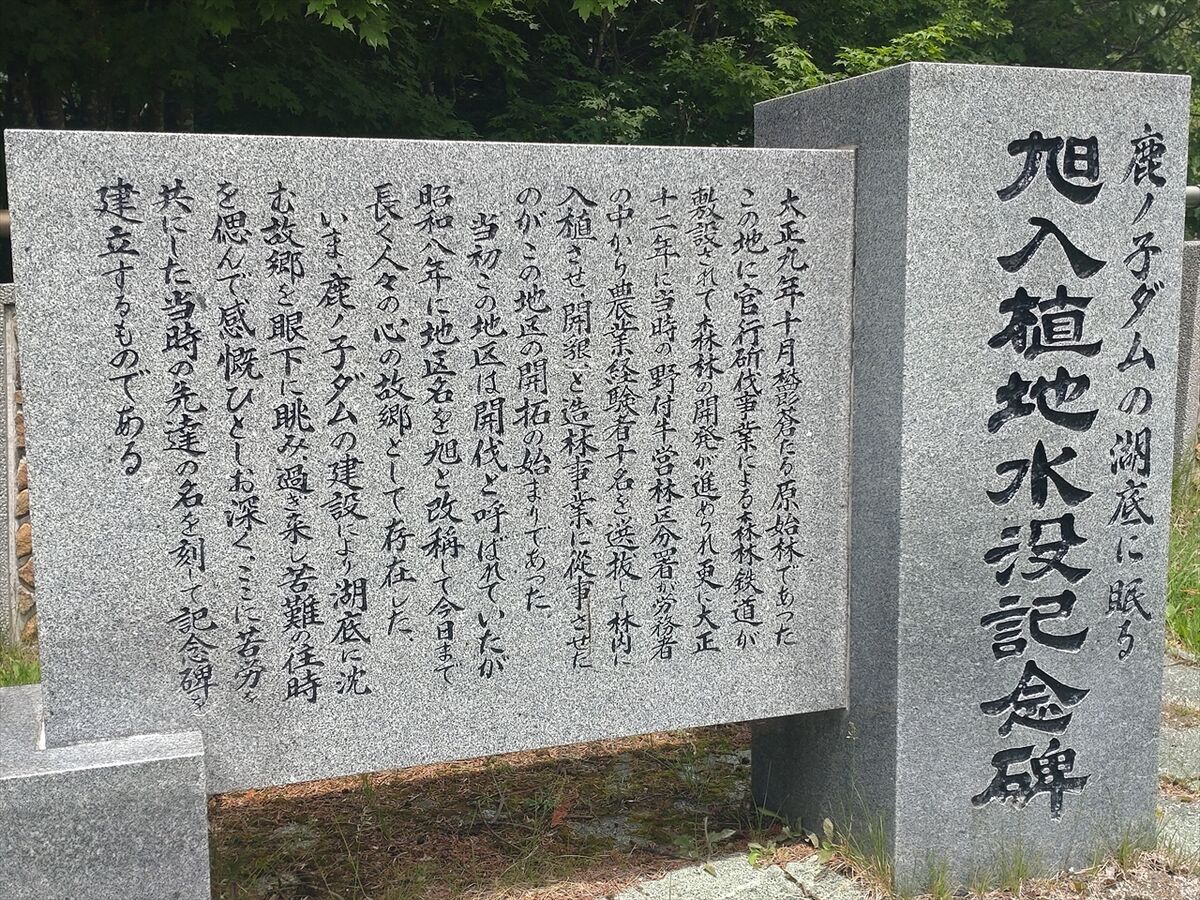 鹿ノ子ダムの湖底に眠る
旭入植地水没記念碑
大正九年十月鬱蒼たる原始林であった
この地に官行斫伐事業による森林鉄道が
敷設されて森林の開発が進められ更に大正
十二年に当時の野付牛営林区分署が労務者
の中から農業経験者十名を選抜して林内に
入植させ、開懇、と造林事業に従事させた
のがこの地区の開拓の始まりであった、
当初この地区は開伐と呼ばれていたが
昭和八年に地区名を旭と改称して今日まで
長く人々の心の故郷として存在した、
いま、鹿ノ子ダムの建設により湖底に沈
む故郷を眼下に眺み、過ぎ来し苦難の往時
を偲んで感慨ひとしお深く、ここに苦労を
共にした当時の先達の名を刻して記念碑を
建立するものである